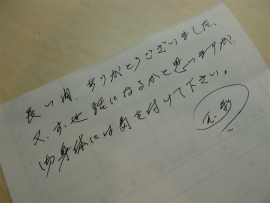 長い間、ありがとうございました、
又、お世話になるかと思いますが、
御身体には気を付けて下さい。